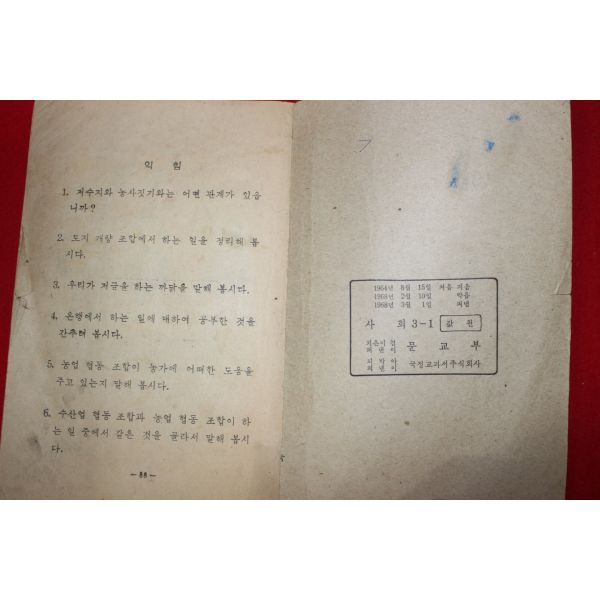 익 힘
1. 저수지와 농사짓기와는 어떤 관계가 있읍
니까?
2. 토지 개량 조합에서 하는 일을 정리해 봅
시다.
3. 우리가 저금을 하는 까닭을 말해 봅시다.
4. 은행에서 하는 일에 대하여 공부한 것을
간추려 봅시다.
5. 농업 협동 조합이 농가에 어떠한 도움을
주고 있는지 말해 봅시다.
6. 수산업 협동 조합과 농업 협동 조합이 하
는 일 중에서 같은 것을 골라서 말해 봅시
다.
— 88 —
1964년 8월 15일 처음 지음
1968년 2월 10일 박음
1968년 3월 1일 펴냄
사 회 3-1 값 원
지은이 겸
펴낸이 문 교 부
펴낸이 국정교과서주식회사